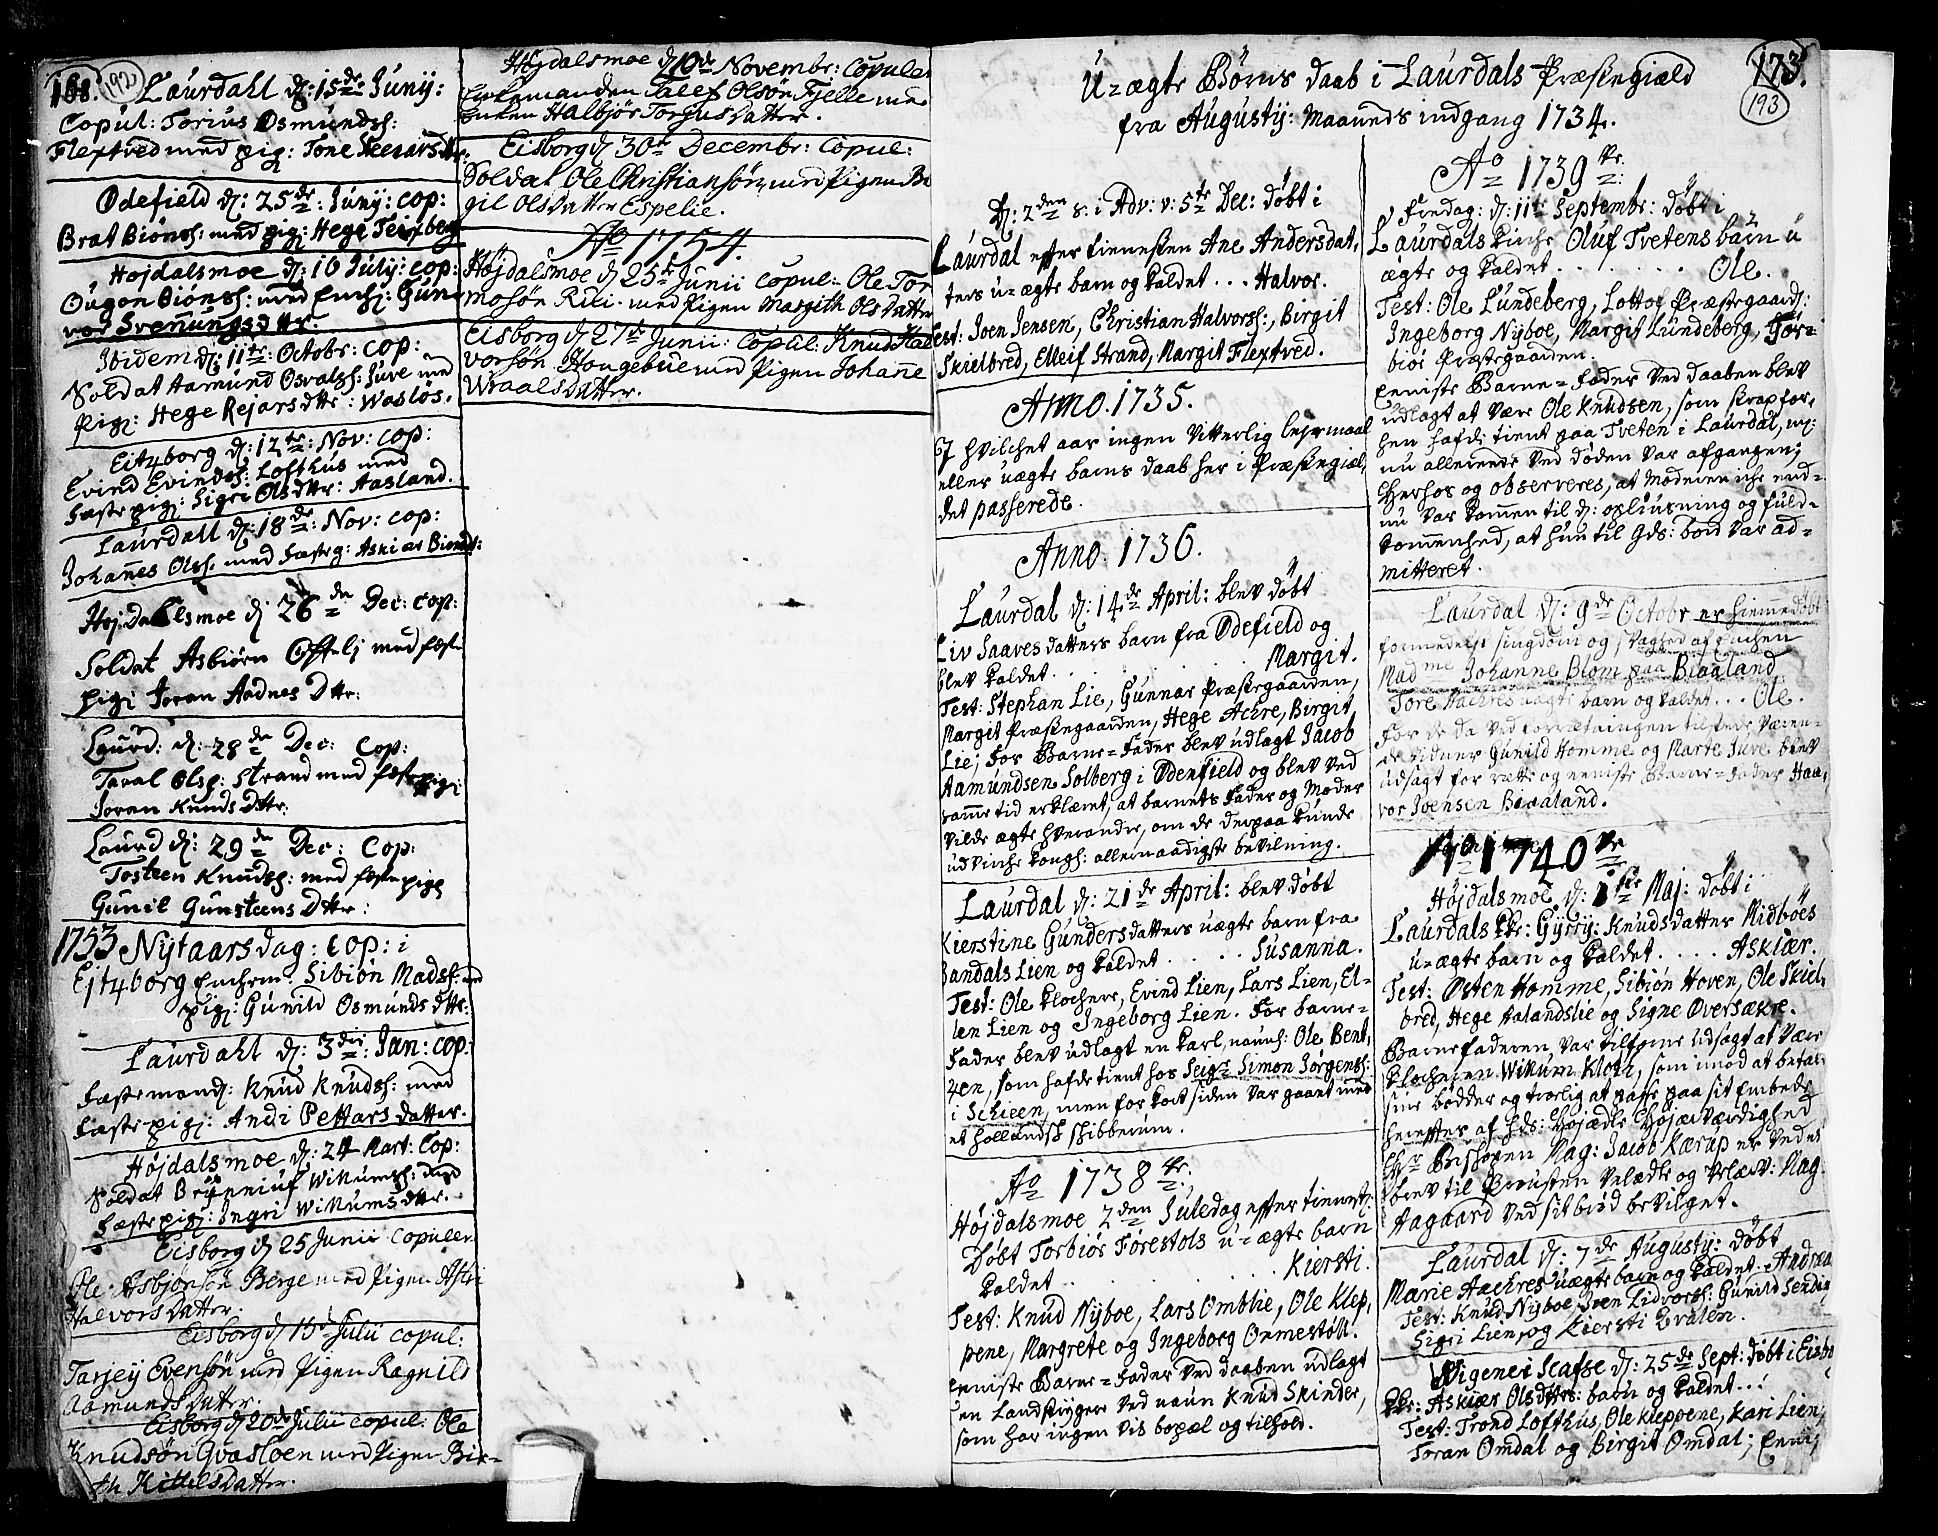 168. 192
Laurdahl d: 15de Junij:
Copul: Torius Osmundsh:
Flextved med pig: Tone Sveinarsdtr
Ødefield d: 25de: Junij: cop:
Brat Biønsh: med pig: Hege Teixberg
Hojdalsmoe d: 10 July: cop:
Ougon Biønsh: med Enchj: Gun-
vor Svennungsdttr.
Ibidem d: 11te: Octobr: cop:
Soldat Aamund Osvalsh: Juve med
pigj: Hege Rejarsdttr: Wasløs.
Eitzborg d: 12te: Nov: cop:
Evind Evindsh: Lofthus med
fæste pigj: Sigri Olsdttr: Aasland.
Laurdall d: 18de: Nov: cop:
Johannes Olsh. med fæstg: Askiær Biøndt:
Hojdalsmoe d: 26de Dec: cop:
Soldat Asbiørn Ofteli med fæste
pigi Joran Aadnes Dttr:
Laurd: d: 28de Dec: Cop:
Taral Olsh: Strand med fæstepigj:
Joren Knuds Dttr.
Laurd d: 29de Dec: Cop:
Tosteen Knudsh: med fæstepige
Gunil Gunsteens Dttr:
1753 Nytaarsdag: Cop: i
Ejtzborg Enchem: Sibiøn Madsh: med
pigj: Gunild Osmunds dttr:
Laurdahl d: 3die: Jan: cop:
fæstemand: Knud Knudsh: med
fæstepigj: Andi Pettars datter.
Højdalsmoe d: 24 Mart: Cop:
Soldat Brynniuf Wikumsh: med
fæstepigj: Ingri Wikumsdttr.
Eisborg d 25 Junii Copuler
Ole Asbjønsøn Berge med Pigen Astri
Halvors Datter:
Eisborg d 15d Julii copul:
Tarjey Evensøn med Pigen Ragnild
Aamunds Datter.
Eisborg d 20de Julii copul: Ole
Knudsøn Qvasloen med Pigen Bir-
th Kittels Datter.
Højdalsmoe d 10de Novembr: Copuler
Enkemanden Talef Olsøn Fjelle med
Enken Halbjør Torgus Datter.
Eisborg d 30te Decembr: Copul:
Soldat Ole Christiansøn med Pigen Bi
gil Ols Datter Espelie.
Ao 1754.
Højdalsmoe d 25te Junii Copul: Ole Tor
mosøn Riii med Pigen Margith Ols Datter
Eisborg d 27de Junii: Copul: Knud Hal
vorsøn Hougebue med Pigen Johanne
Wraals Datter.
U=ægte Børns daab i Laurdals Præstegiæld
fra Augustij: Maaneds indgang 1734.
173.
193
D: 2den S: i Adv: v: 5te Dec: døbt i
Laurdal efter tienesten Ane Andersdat,
ters u=ægte barn og kaldet . . . Halvor.
Test: Joen Jensen, Christian Halvorsh:, Birgit
Skielbred, Elleif Strand, Margit Flextved.
Anno. 1735.
I hvilchet aar ingen vitterlig leyermaal
eller uægte barns daab her i Præstegiæl,
det passerede.
Anno. 1736.
Laurdal d: 14de April: blev døbt
Liv Saaves datters barn fra Ødefield og
blev kaldet . . Margit.
Test: Stephan Lie, Gunnar Præstegaarden,
Margit Præstegaarden, Hege Achre, Birgit
Lie; For Barne=Fader blev udlagt Jacob
Aamundsen Solberg i Ødenfield og blev ved
samme tid erklæret, at barnets Fader og Moder
vilde ægte hverandre, om de derpaa kunde
udvirche Kongh: allernaadigste bevilning.
Laurdal d: 21de April: blev døbt
Kierstine Gunders datters uægte barn fra
Bandals Lien og kaldet . . . . . Susanna.
Test: Ole Klochere, Evind Lien, Lars Lien, El-
len Lien og Ingeborg Lien. For barne-
Fader blev udlagt en karl, naunh: Ole Bent,
zen, som hafde tient hos Seigr Simon Jørgensh:
i Schieen, men for kort siden var gaaet med
et hollandsk skibberum.
Ao 1738 Kr.
Højdalsmoe 2den Juledag efter tienestj:
Døbt Torbiør Førestøls u=ægte barn
kaldet . . . . . . . . . . . Kiersti.
Test: Knud Nyboe, Lars Omblie, Ole Klep,
pene, Margrete og Ingeborg Ormestøll.
Enniste Barne=Fader ved daaben udlagt
en Landstryger ved naun Knud Skinder,
som har ingen vis bopæl og tilhold.
Ao 1739 Kr.
Fredag: d: 11te Septembr: døbt i
Laurdals Kirche Oluf Tvetens barn u
ægte og kaldet . . . . . . . Ole.
Test: Ole Lundeberg, Lottof Præstegaard:
Ingeborg Nyboe, Margit Lundeberg, Tør-
biør Præstegaarden.
Enniste Barne=Fader ved daaben blev
udlagt at være Ole Knudsen, som strax for,
hen hafde tient paa Tveten i Laurdal, mj:
nu allereede ved døden var afgangen;
Herhos og observeres, at Moderen iche end-
nu var kommen til d: opliusning og fuld-
kommenhed, at hun til Gds: bord var ad-
mitteret.
Laurdal d: 9de Octobr er hiemmedøbt
formedelst siugdom og svaghed af Enchen
Madme Johanne Blom paa Blaaland
Tore Aachres uægte barn og kaldet . . . Ole.
For de da ved forretningen tilstede væren-
de vidner Gunild Homme og Marte Juve blev
udsagt for rette og enniste Barne=Fader Haa,
vor Joensen Blaaland.
Ao 1740 Kr
Højdalsmoe d: 1ste Maj: døbt i
Laurdals Kr: Gyrry: Knudsdatter Midbøes
u=ægte barn og kaldet . . . . Askiær.
Test: Østen Homme, Sibiøn Hoven, Ole Skiel,
bred, Hege Aalandslie og Signe Oversækre.
Barnefaderen var tilforne udsagt at være
Klocheren Wikum Klock, som imod at betale
sine bødder og troelig at passe paa sit Embede
herefter af Hds: Højædle Højærværdighed
Hr Bishopen Mag: Jacob Kærup er ved et
brev til Provsten Velædle og Velærv: Mag.
Aagaard ved sit brød bevilget.
Laurdal d: 7de Augustij: døbt
Marie Aachres uægte barn og kaldet . Andrea
Test: Knud Nyboe, Sven Lidvorsh: Gunild Sendig
Sigri Lien, og Kiersti Qvalen.
Vigener Scafse d: 25de Sept: døbt i Eisbo
Kr: Askiær Olsdttrs: barn og kaldet . . :
Test: Trond Lofthus, Ole Kleppene, Kari Lien,
Toran Omdal og Birgit Omdal; Enni